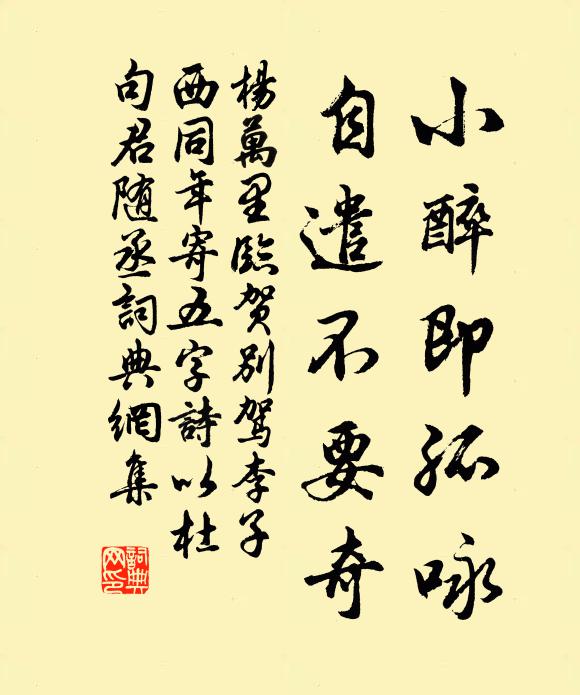 小醉即孤咏
自遣不要奇
楊萬里臨賀别駕李子
西同年寄五字詩以杜
句君随丞詞典網集
詞典网印